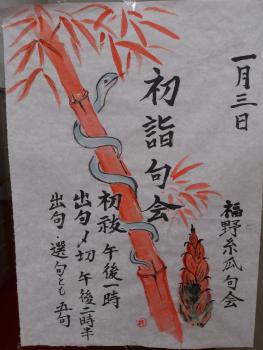 一月三日
初詣句会
福野糸瓜句会
初祓 午後一時
出句〆切 午後二時半
出句・選句とも 五句